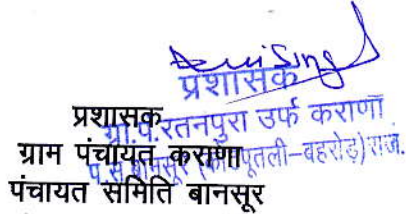 प्रशासक
ग्रा.पं.रतनपुरा उर्फ कराणा
पं.स.बानसूर (कोटपूतली-बहरोड़) राज.
प्रशासक
ग्राम पंचायत कराणा
पंचायत समिति बानसूर